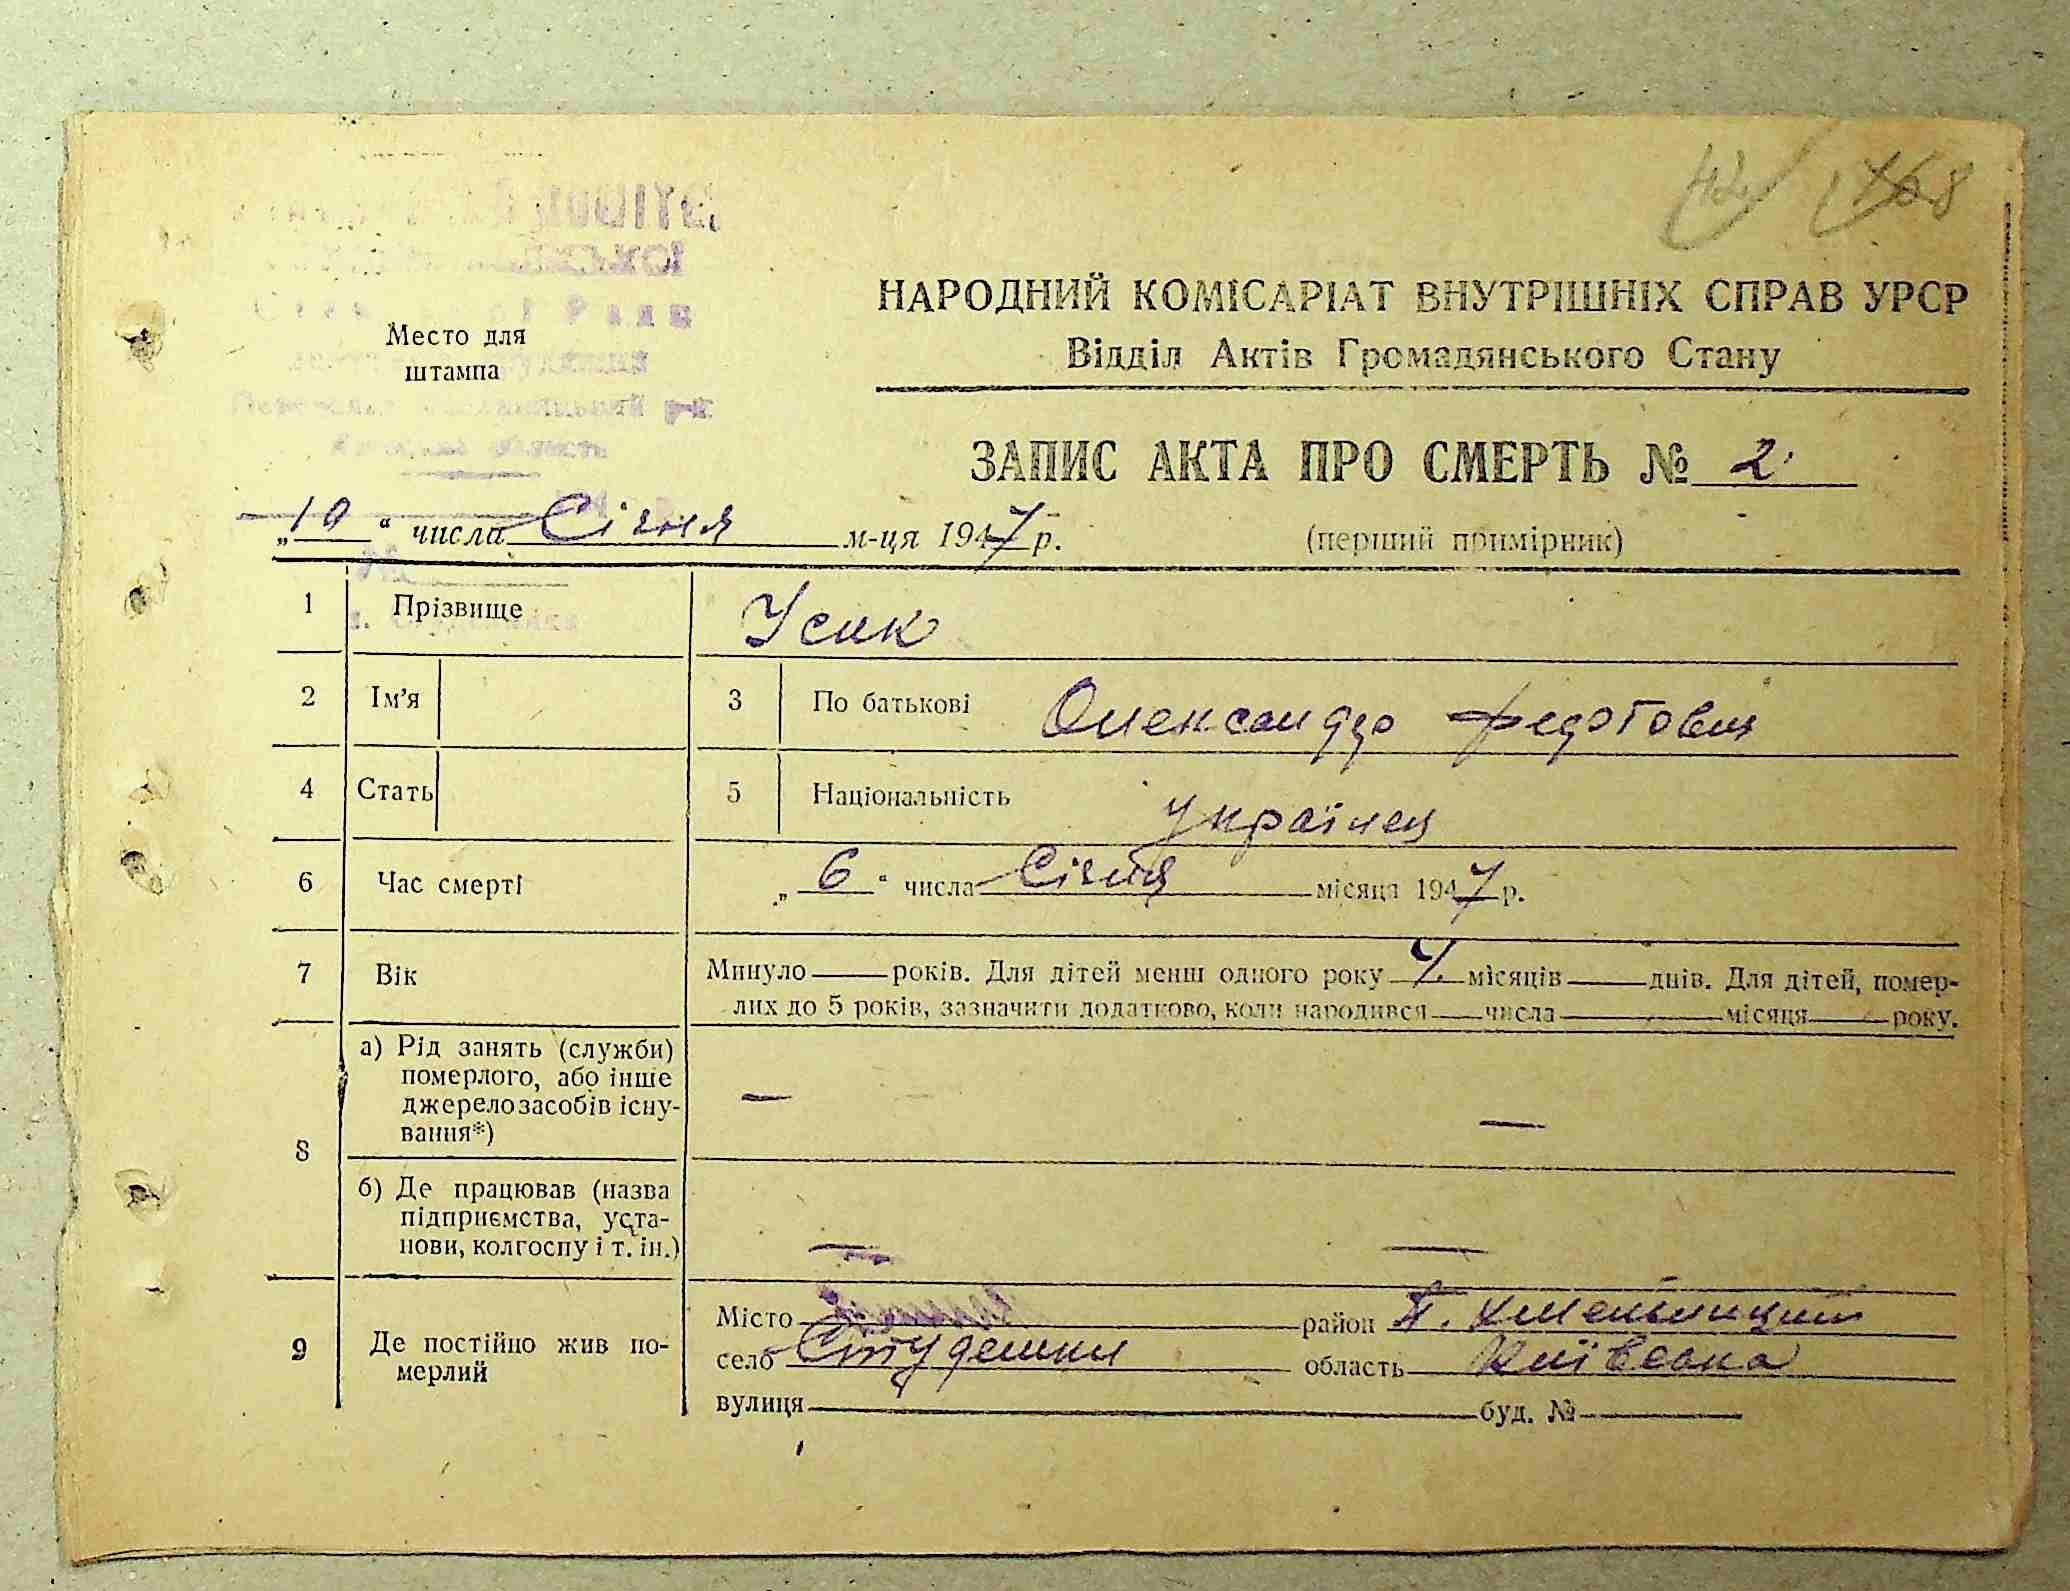 Ради
Место для
штампа
НАРОДНИЙ КОМІСАРІАТ ВНУТРІШНІХ СПРАВ УРСР
Відділ Актів Громадянського Стану
ЗАПИС АКТА ПРО СМЕРТЬ № 2
„10“ числа Січня м-ця 1947 р.
(перший примірник)
1 Прізвище Усик
2 Ім'я 3 По батькові Олександр Федотович
4 Стать 5 Національність Українец
6 Час смерті „6“ числа Січня місяца 1947 р.
7 Вік Минуло років. Для дітей менш одного року 7 місяців днів. Для дітей, помер-
лих до 5 років, зазначити додатково, коли народився числа місяця року.
8 а) Рід занять (служби)
померлого, або інше
джерело засобів існу-
вання*) — —
б) Де працював (назва
підприємства, уста-
нови, колгоспу і т. ін.) — —
9 Де постійно жив по-
мерлий
Місто район П. Хмельницький
село Студеники область Київська
вулиця буд. №